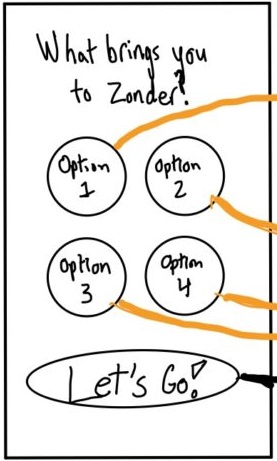 What brings you
to Zonder?
Option
1
Option
2
Option
3
Option
4
Let's Go!